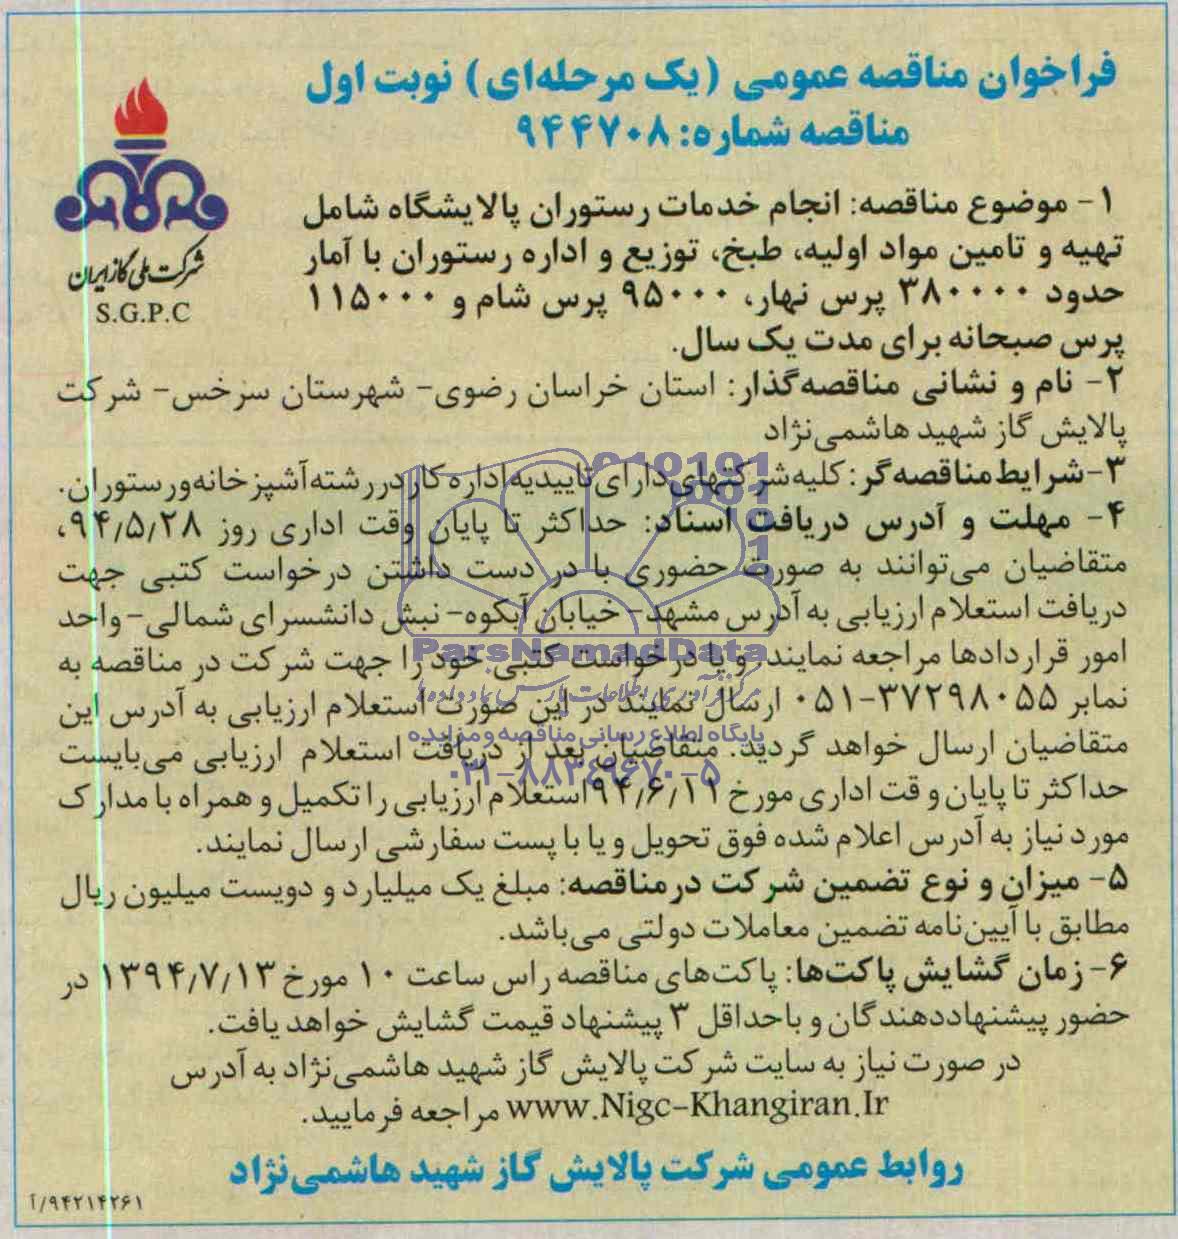 فراخوان مناقصه عمومی (یک مرحله‌ای) نوبت اول
مناقصه شماره: ۹۴۴۷۰۸
شرکت ملی گاز ایران
S.G.P.C
۱- موضوع مناقصه: انجام خدمات رستوران پالایشگاه شامل
تهیه و تامین مواد اولیه، طبخ، توزیع و اداره رستوران با آمار
حدود ۳۸۰۰۰۰ پرس نهار، ۹۵۰۰۰ پرس شام و ۱۱۵۰۰۰
پرس صبحانه برای مدت یک سال.
۲- نام و نشانی مناقصه‌گذار: استان خراسان رضوی- شهرستان سرخس- شرکت
پالایش گاز شهید هاشمی‌نژاد
۳-شرایط مناقصه‌گر: کلیه شرکتهای دارای تاییدیه اداره کار در رشته آشپزخانه و رستوران.
۴- مهلت و آدرس دریافت اسناد: حداکثر تا پایان وقت اداری روز ۹۴/۵/۲۸،
متقاضیان می‌توانند به صورت حضوری با در دست داشتن درخواست کتبی جهت
دریافت استعلام ارزیابی به آدرس مشهد- خیابان آبکوه- نبش دانشسرای شمالی- واحد
امور قراردادها مراجعه نمایند، و یا درخواست کتبی خود را جهت شرکت در مناقصه به
نمابر ۳۷۲۹۸۰۵۵-۰۵۱ ارسال نمایند در این صورت استعلام ارزیابی به آدرس این
متقاضیان ارسال خواهد گردید. متقاضیان بعد از دریافت استعلام ارزیابی می‌بایست
حداکثر تا پایان وقت اداری مورخ ۹۴/۶/۱۱ استعلام ارزیابی را تکمیل و همراه با مدارک
مورد نیاز به آدرس اعلام شده فوق تحویل و یا با پست سفارشی ارسال نمایند.
۵- میزان و نوع تضمین شرکت در مناقصه: مبلغ یک میلیارد و دویست میلیون ریال
مطابق با آیین‌نامه تضمین معاملات دولتی می‌باشد.
۶- زمان گشایش پاکت‌ها: پاکت‌های مناقصه راس ساعت ۱۰ مورخ ۱۳۹۴/۷/۱۳ در
حضور پیشنهاددهندگان و با حداقل ۳ پیشنهاد قیمت گشایش خواهد یافت.
در صورت نیاز به سایت شرکت پالایش گاز شهید هاشمی‌نژاد به آدرس
www.Nigc-Khangiran.Ir مراجعه فرمایید.
روابط عمومی شرکت پالایش گاز شهید هاشمی‌نژاد
۹۴۲۱۴۲۶۱/آ
ParsNamadData
مرکز فرآوری اطلاعات پارس نماد داده ها
پایگاه اطلاع رسانی مناقصه و مزایده
۰۲۱-۸۸۳۴۹۶۷۰-۵